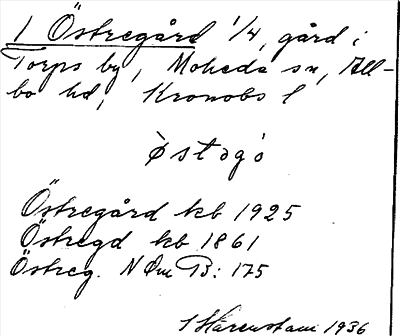 1 Östregård 1/4, gård i
Torps by, Moheda sn, All-
bo hd, Kronobs l
östəgò
Östregård kb 1925
Östregd kb 1861
Östreg. N Om B: 175
S Härenstam 1936